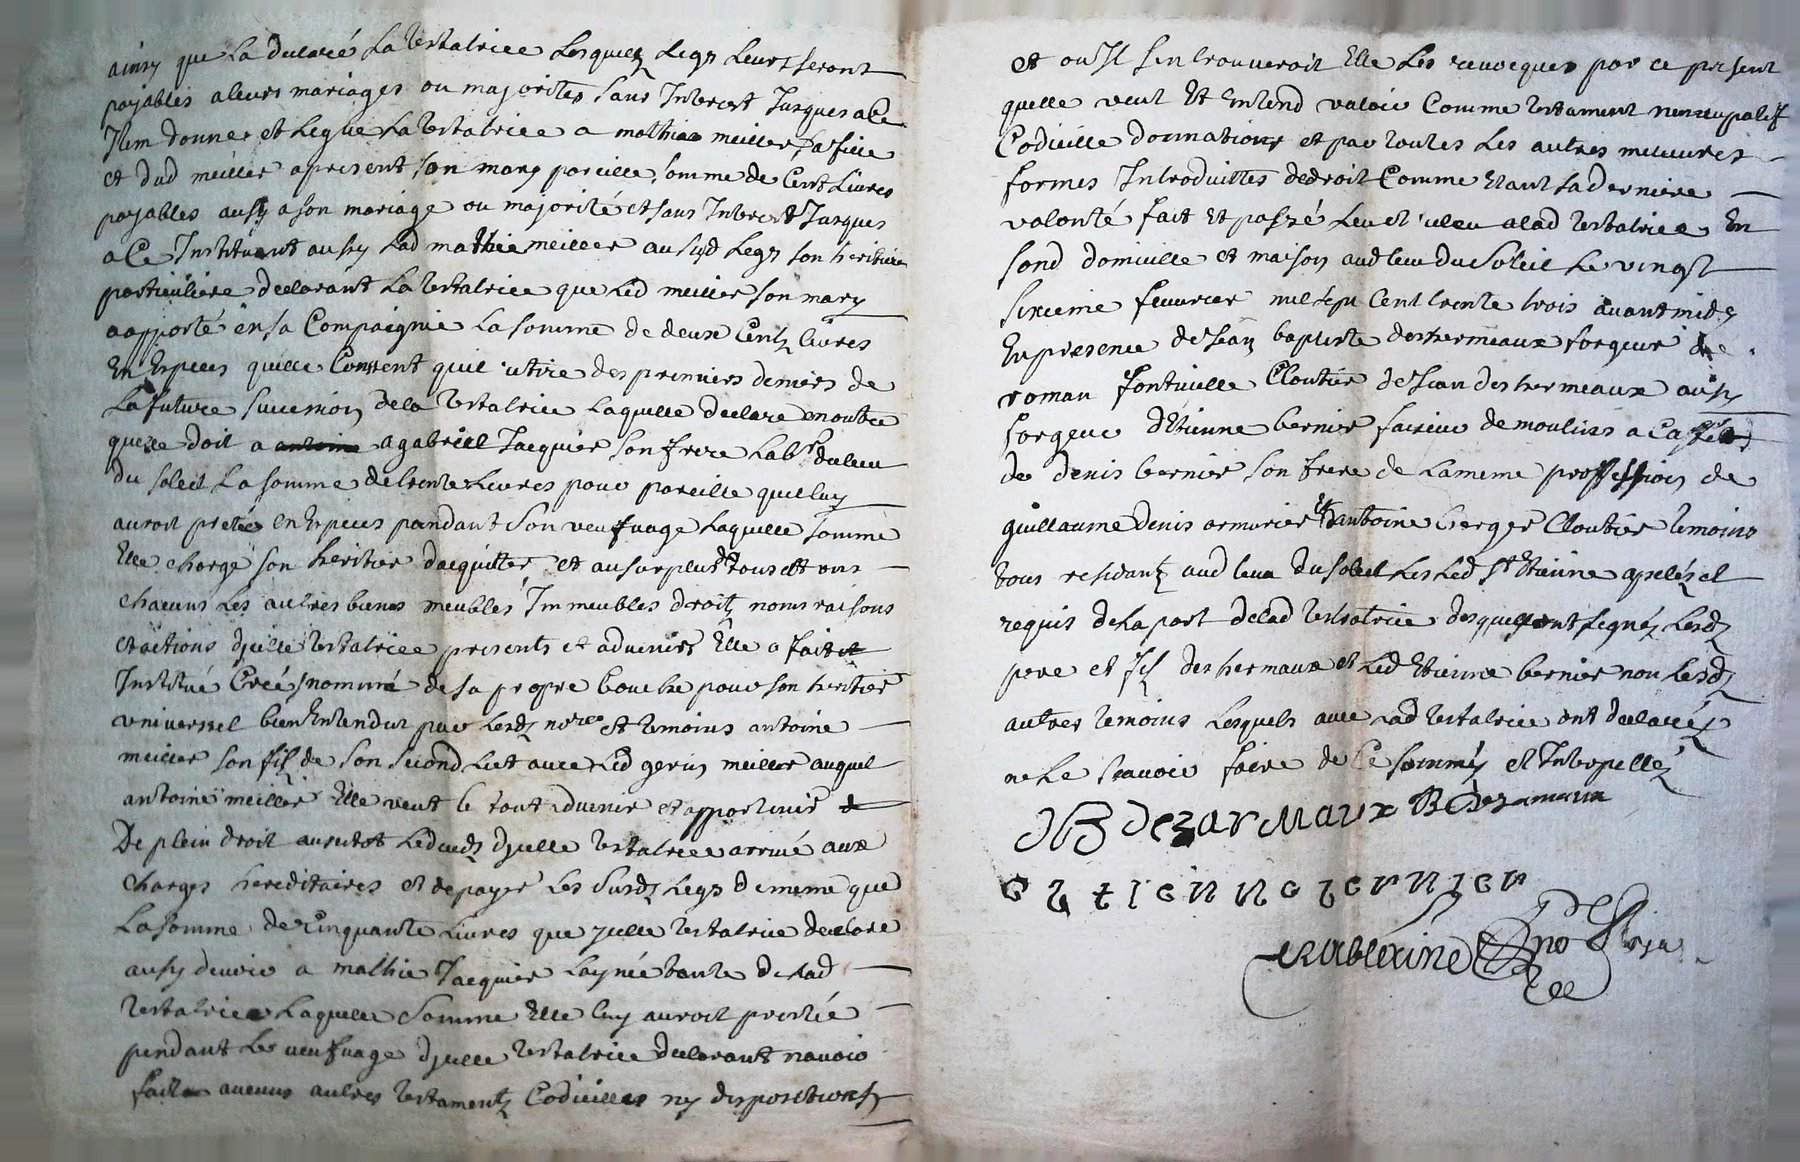 ainsy que La declaré La testatrice Lesquelz Legs Leurs seront
payables a leurs mariages ou majorités sans Interest Jusques a Ce
Item donne et Legue La testatrice a mathie meiller sa fille
et dud meiller apresent son mary pareille somme de Cent Livres
payables aussy a son mariage ou majorité et sans Interest Jusques
a Ce Instituant aussy Lad mathie meiller au susd Legs son heritiere
particuliere declarant La testatrice que Led meiller son mary
a apporté en sa Compaignie La somme de deux Centz livres
En Especes quelle Consent quil retire des premiers deniers de
La future succession de la testatrice Laquelle declare en outre
quelle doit a a gabriel Jacquier son frere Labr du lieu
du soleil La somme de trente Livres pour pareille que luy
auroit pretée en Especes pandant son veufvage Laquelle somme
Elle charge son heritier d'acquitter et au surplus tous et uns
chacuns Les autres biens meubles Immeubles droitz noms raisons
et actions d'jcelle testatrice presents et advenirs Elle a fait et
Institué Creé nommé de sa propre bouche pour son heritier
universel bien Entendu par Lesdz nores et temoins antoine
meiller son filz de son second Lict avec Led gerin meiller auquel
antoine meiller Elle veut le tout advenir et appartenir
De plein droit aussitot Led deds djcelle testatrice arrivé aux
Charges hereditaires et de payer Les susdz Legs de meme que
La somme de Cinquante Livres que jcelle testatrice declare
aussy devoir a mathie Jacquier Laynée tante de Lad
testatrice Laquelle somme Elle luy auroit prestée
pendant Le veufvage djcelle testatrice declarant n'avoir
fait aucuns autres testamentz Codicilles ny dispositions
et ou Il s'en trouveroit Elle Les revocques par ce present
quelle veut Et Entend valoir Comme testament nuncupatif
Codicille donnations et par toutes Les autres meilleures
formes Introduittes de droit Comme Etant sa derniere
volonté fait Et passé Leu et releu a lad testatrice En
sond domicille et maison aud lieu du Soleil Le vingt
sixieme fevvrier mil sept Cent trente trois avant midy
En presence de Jean baptiste deshermeaux forgeur de
roman fontvielle Cloutier de Jean deshermeaux aussy
forgeur d'Etienne bernier faiseur de moulins a Caffé
de denis bernier son frere de La meme proffession de
guillaume denis armurier Et d'antoine berger Cloutier temoins
tous residantz aud lieu du Soleil Les Led St Etienne apelés et
requis de la part de lad testatrice desquels ont signéz Lesdz
pere et filz deshermaux et Led Etienne bernier non Lesdz
autres temoins Lesquels avec Lad testatrice ont declaréz
ne Le scavoir faire de Ce sommés et Interpellés
JB dezarmaux
Estienne bernier